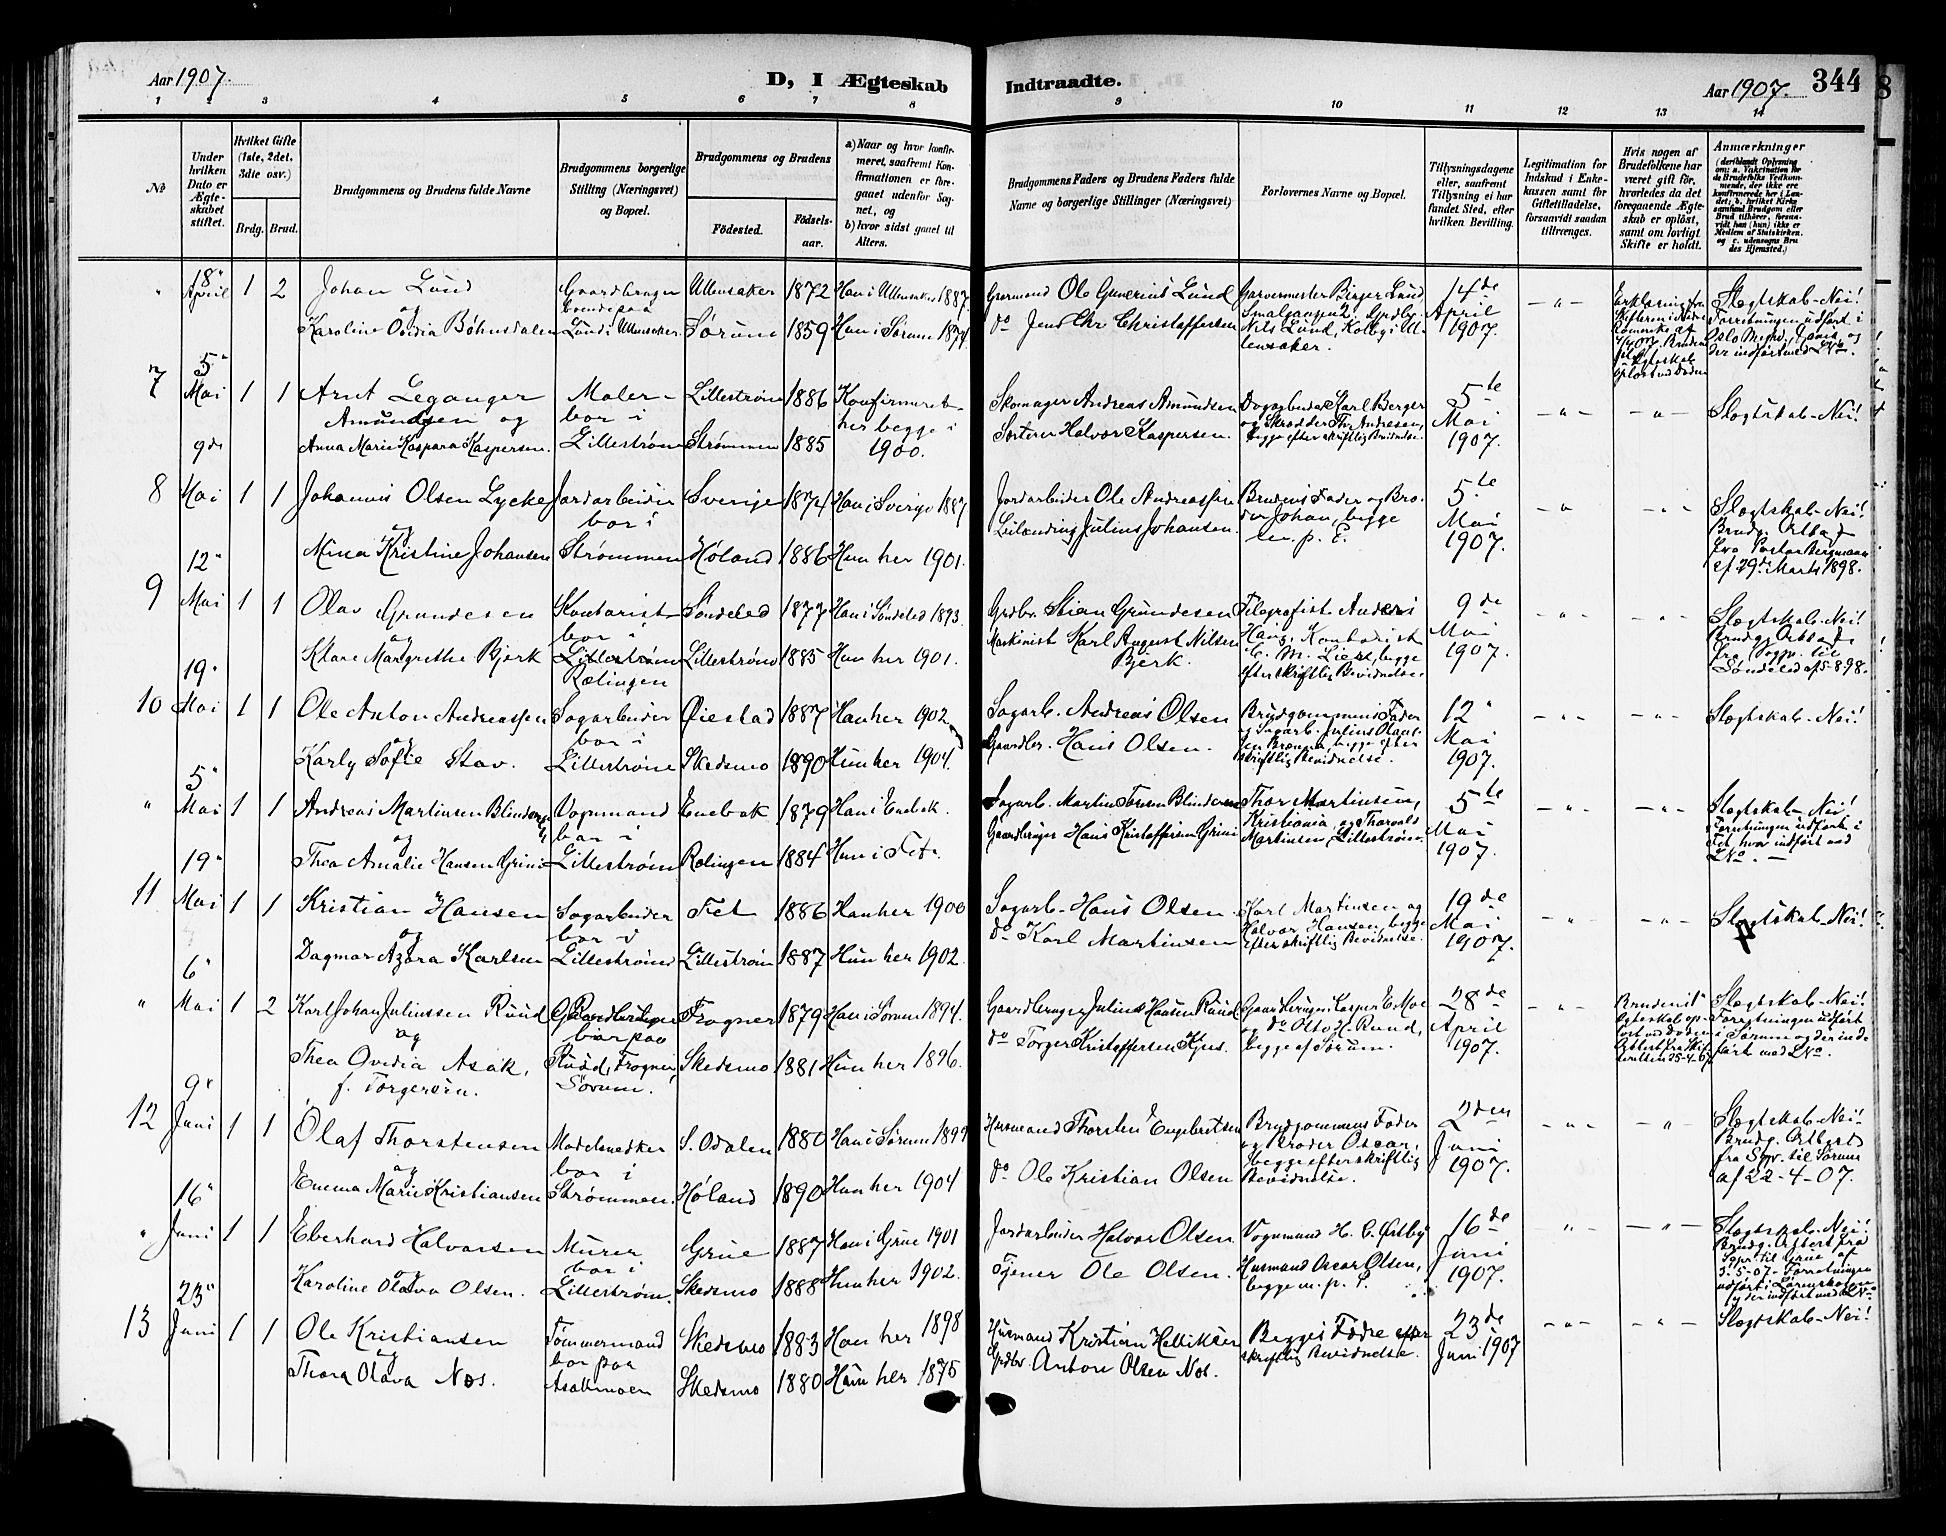 Aar 1907. D, I Ægteskab
Indtraadte. Aar 1907. 344
1 2 3 4 5 6 7 8 9 10 11 12 13 14
No
Under hvilken Dato er Ægteskabet stiftet.
Hvilket Gifte (1ste, 2det, 3die osv.)
Brdg. Brud.
Brudgommens og Brudens fulde Navne
Brudgommens borgerlige Stilling (Næringsvei) og Bopæl.
Brudgommens og Brudens
Födested. Födselsaar.
a) Naar og hvor konfirmeret, saafremt Konfirmationen er foregaaet udenfor Sognet, og
b) hvor sidst gaaet til Alters.
Brudgommens Faders og Brudens Faders fulde Navne og borgerlige Stillinger (Næringsvei)
Forlovernes Navne og Bopæl.
Tillysningsdagene eller, saafremt Tillysning ei har fundet Sted, efter hvilken Bevilling.
Legitimation for Indskud i Enkekassen samt for Giftetilladelse, forsaavidt saadan tiltrænges.
Hvis nogen af Brudefolkene har været gift för, hvorledes da det foregaaende Ægteskab er oplöst, samt om lovligt Skifte er holdt.
Anmærkninger
(deriblandt Oplysning om: a. Vakcination for de Brudefolks Vedkommende, der ikke ere konfirmerede her i Landet; b. hvilket Kirkesamfund Brudgom eller Brud tilhörer, forsaavidt han (hun) ikke er Medlem af Statskirken, og c. udensogns Brudes Hjemsted.)
" 18" April 1 2 Johan Lund Gaardbruger Ullensaker 1872 Han i Ullensaker 1887. Garmand Ole Gunerius Lund Garvermester Birger Lund 14de - " - Slægtskab - Nei!
og boende paa Smalgangen 2, Grdbr. April
Karoline Ovidia Bøhnsdalen Lund i Ullensaker. Sørum 1859 Hun i Sørum 1874. do Jens Chr Christoffersen Nils Lund, Kolby i Ullensaker. 1907.
7 5" Mai 1 1 Arnt Leganger Maler - Lillestrøm 1886 Konfirmeret Skomager Andreas Amundsen Dagarbeider Karl Berger 5te - " - - " - Slægtskab - Nei!
Amundsen og bor i her begge i og Skrædder Thv. Andresen, Mai
Anna Marie Kaspara Kaspersen. Lillestrøm Strømmen 1885 1900. Sorterer Halvor Kaspersen. begge efter skriftlig Bevidnelse. 1907.
8 9de Mai 1 1 Johannes Olsen Lycke Jordarbeider Sverige 1874 Han i Sverige 1887. Jordarbeider Ole Andreassen Brudens Fader og Bro- 5te - " - " - Slægtskab - Nei!
og bor i der Johan, begge Mai Brudg. Attest
Mina Kristine Johansen Strømmen Høland 1886 Hun her 1901. Leilænding Julius Johansen. 1907. fra Pastor Bergman af 29de Marts 1898.
9 12" Mai 1 1 Olav Grundesen Kontorist Søndeled 1877 Han i Søndeled 1893. Grdbr. Stian Grundesen Telegrafist Anders 9de - " - - " - Slægtskab - Nei!
og bor i Haug, Kontorist Mai Brudg. Attest
Klara Margrethe Bjerk Lillestrøm Lillestrøm 1885 Hun her 1901. Maskinist Karl August Nilsen C. M. Lier, begge 1907. fra Sogpr. til
Rælingen Bjerk. efter skriftlig Bevidnelse. Søndeled af 5-8-98.
10 19" Mai 1 1 Ole Anton Andreassen Sagarbeider Øiestad 1887 Han her 1902. Sagarb. Andreas Olsen Brudgommens Fader 12" - " - - " - Slægtskab - Nei!
og bor i og Sagarb. Julius Mai
Karly Sofie Stav. Lillestrøm Skedsmo 1890 Hun her 1904. Gaardbr. Hans Olsen. begge efter skriftlig Bevidnelse. 1907.
" 5" Mai 1 1 Andreas Martinsen Vognmand Enebak 1879 Han i Enebak. Sagarb. Martin Thor Martinsen, 5te - " - - " - Slægtskab - Nei!
og bor i Kristiania, og Thorvald Mai Forretningen udført i
Thea Amalie Hansen Grini Lillestrøm Rælingen 1884 Hun i Fet. Gaardbruger Hans Kristoffersen Grini Martinsen, Lillestrøm. 1907. Fet, hvor indført med L No. -
11 19" Mai 1 1 Kristian Hansen Sagarbeider Fet 1886 Han her 1900 Sagarb. Hans Olsen. Karl Martinsen og 19de - " - - " - Slægtskab - Nei!
og bor i Halvor Hansen, begge Mai
Dagmar Azora Karlsen Lillestrøm Lillestrøm 1887 Hun her 1902. do Karl Martinsen efter skriftlig Bevidnelse. 1907.
" 6" Mai 1 2 Karl Johan Juliussen Ruud Gaardbruger Frogner 1879 Han i Sørum 1894. Gaardbruger Julius Hansen Ruud Gaardbruger Kasper E. Moe 28de - " - Brudens Slægtskab - Nei!
og bor paa og do Otto H. Ruud, April Ægteskab op- Forretningen udført
Thea Ovidia Asak, Ruud, Frogner, Skedsmo 1881 Hun her 1896. do Torger Kristoffersen Kjus. begge af Sørum. 1907. løst ved Døden i Sørum og der ind-
f. Torgersen. Sørum. Attest fra 25-4-07 ført med L No.
12 9" Juni 1 1 Olaf Thorstensen Modelsnedker S. Odalen 1880 Han i Sørum Husmand Thorsten Engebretsen Brudgommens Fader 2den - " - - " - Slægtskab - Nei!
og bor i og Broder Oscar, Juni Brudg. Attest
Emma Marie Kristiansen Strømmen. Høland 1890 Hun her 1904 do. Ole Kristian Olsen begge efter skriftlig Bevidnelse. 1907. fra Spr. til Sørum af 22-4-07.
" 16" Juni 1 1 Eberhard Halvorsen Murer Grue 1887 Han i Grue 1901 Jordarbeider Halvor Olsen Vognmand H. C. Østby 16de - " - - " - Slægtskab - Nei!
og bor i Husmand Oscar Olsen, Juni Brudg. Attest fra
Karoline Olava Olsen. Lillestrøm. Skedsmo 1888 Hun her 1902. Tjener Ole Olsen. begge m. p. P. 1907. Sgpr. til Grue af 3-5-07. Forretningen
13 23" Juni 1 1 Ole Kristiansen Tømmermand Skedsmo 1883 Han her 1898 Husmand Kristian Helliksen Begges Fædre efter 23de - " - - " - Slægtskab - Nei!
og bor paa skriftlig Bevidnelse. Juni 1907
Thora Olava Næs. Asakmoen Skedsmo 1880 Hun her 1875 Grdbr. Anton Olsen Næs.